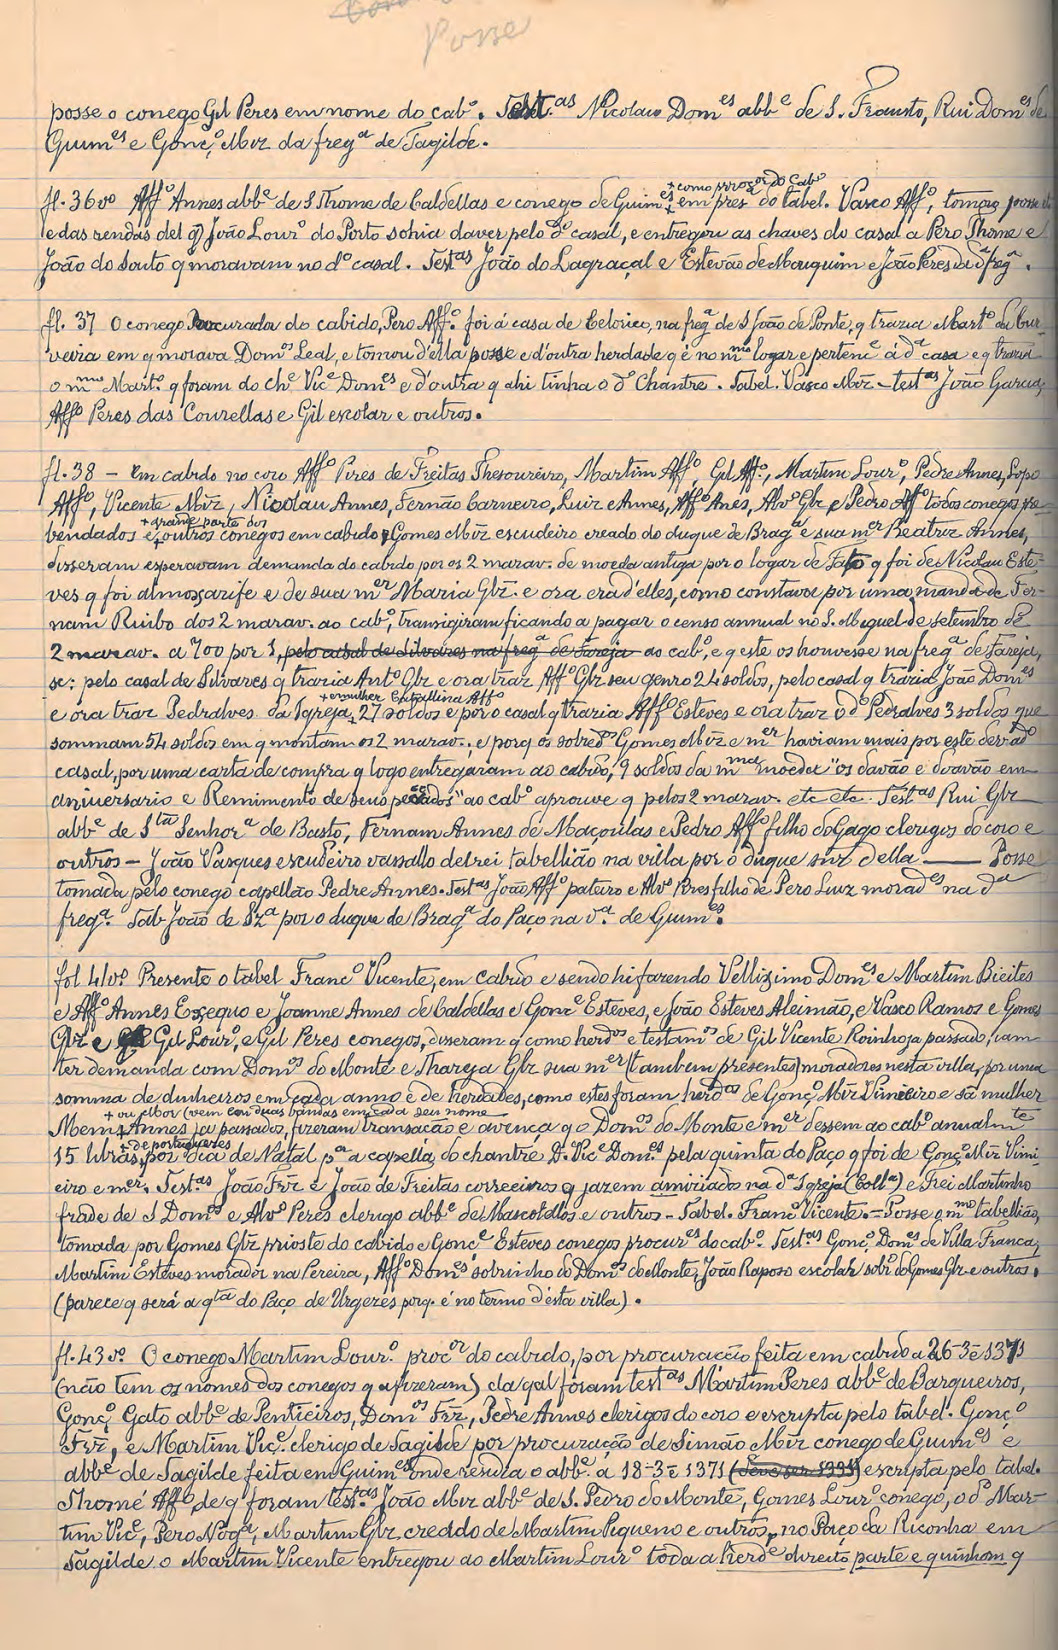 Posse
posse o conego Gil Peres em nome do cabº. Testªˢ Nicolau Domᵉˢ abbᵉ de S. Frausto, Rui Domᵉˢ de
Guimᵉˢ e Gonçº Mĩz da fregª de Tagilde.
fl. 36 vº Affº Annes abbᵉ de S Thome de Caldellas e conego de Guimᵉˢ + como procᵒʳ do Cabº em pres do tabel. Vasco Affº, tomou posse
e das rendas del q̃ João Lourº do Porto sohia daver pelo dº casal, e entregou as chaves do casal a Pero Thome e
João do Souto q moravam no dº casal. Testªˢ João do Lagraçal e Estevão de Mouquim e João Peres da dª fregª.
fl. 37 O conego Procurador do cabido, Pero Affº. foi á casa de Celorico, na fregª de S João de Ponte, q trazia Martº da Cur-
veria em q morava Domᵒˢ Leal, e tomou d'ella posse e d'outra herdade q é no mᵐᵒ logar e pertencᵉ á dª casa e q trazia
o mᵐᵒ Martº. q foram do chᵉ Vicᵉ Domᵉˢ e d'outra q ahi tinha o dº Chantre. Tabel. Vasco Mĩz – testªˢ João Garcia,
Affº Peres das Courellas e Gil escolar e outros.
fl. 38 – Em cabido no coro Affº Pires de Freitas Thesoureiro, Martim Affº, Gil Affº, Martim Lourº, Pedre Annes, Lopo
Affº, Vicente Mĩz, Nicolau Annes, Fernão Carneiro, Luiz Annes, Affº Anes, Alvº Glz e Pedro Affº todos conegos pre-
bendados e + grande parte dos outros conegos em cabido, Gomes Mĩz escudeiro creado do duque de Bragª e sua mᵉʳ Beatriz Annes,
disseram esperavam demanda do cabido por os 2 marav. de moeda antiga por o logar de Fato q foi de Nicolau Este-
ves q foi almoxarife e de sua mᵉʳ Maria Glz. e ora era d'elles, como constava por uma manda de Fer-
nam Ruibo dos 2 marav. ao cabº, transigiram ficando a pagar o censo annual no S. Miguel de setembro de
2 marav. a 700 por 1, pelo casal de Silvares na fregª de Fareja ao cabº, e q este os houvesse na fregª de Fareja,
se: pelo casal de Silvares q trazia Antº Glz e ora traz Affº Glz seu genro 24 soldos, pelo casal q trazia João Domᵉˢ
e ora traz Pedralves da Igreja + e mulher Catallina Affº 27 soldos e por o casal q trazia Affº Esteves e ora traz o dº Pedralves 3 soldos que
sommam 54 soldos em q montam os 2 marav.; e porq os sobredᵒˢ Gomes Mĩz e mᵉʳ haviam mais por este derradº
casal, por uma carta de compra q logo entregaram ao cabido, 9 soldos da mᵐᵃ moeda "os davão e doavão em
aniversario e Remimento de seus peccados" ao cabº aprouve q pelos 2 marav. etc etc. Testªˢ Rui Glz
abbᵉ de Sᵗᵃ Senhorª de Basto, Fernam Annes de Maçoulas e Pedro Affº filho do Gago clerigos do coro e
outros – João Vasques escudeiro vassallo delrei tabellião na villa por o duque snr della —— Posse
tomada pelo conego capellão Pedre Annes. Testªˢ João Affº pateiro e Alvº Pires filho de Pero Luiz moradᵉˢ na dª
fregª. Tab João de Szª por o duque de Bragª do Paço na vª. de Guimᵉˢ.
fol 41 vº Presente o tabel Francº Vicente, em Cabido e sendo hi fazendo Vellizimo Domᵉˢ e Martim Bieites
e Affº Annes Ezequio e Joanne Annes de Caldellas e Goncᵉ Esteves, e João Esteves Aleimão, e Vasco Ramos e Gomes
Glz e Gil Lourº, e Gil Peres conegos, disseram q como herdᵒˢ e testamᵒˢ de Gil Vicente Roinhoja passado, iam
ter demanda com Domᵒˢ do Monte e Thareja Glz sua mᵉʳ (tambem presentes) moradores nesta villa, por uma
somma de dinheiros em cada anno e de herdades, como estes foram herdᵒˢ de Gonçº Mĩz Vimieiro e sa mulher
Mem + ou Mor (vem con duas bandas em cada seu nome Annes ja passados, fizeram transacção e avença q o Domᵒˢ do Monte e mᵉʳ dessem ao cabº anualmᵗᵉ
15 libras + de portuguezes por dia de Natal pª a capella do chantre D. Vicᵉ Domᵉˢ pela quinta do Paço q foi de Gonçº Mĩz Vimi-
eiro e mᵉʳ. Testªˢ João Frz e João de Freitas correeiros q jazem amiziados na dª Igreja (Collª) e Frei Martinho
frade de S Domᵒˢ e Alvº Peres clerigo abbᵉ de Mascotellos e outros – Tabel. Francº Vicente. – Posse o mᵐᵒ tabellião,
tomada por Gomes Glz prioste do cabido e Gonçᵉ Esteves conegos procurᵉˢ do cabº. Testªˢ Gonçº Domᵉˢ de Villa Franca,
Martim Esteves morador na Pereira, Affº Domᵉˢ sobrinho do Domᵒˢ do Monte, João Raposo escolar sobrº do Gomes Glz e outros.
(parece q será a qᵗᵃ do Paço de Urgezes porq. é no termo d'esta villa).
fl. 43 vº. O conego Martim Lourº. procᵒʳ do cabido, por procuracção feita em cabido a 26-3-1371
(não tem os nomes dos conegos q a fizeram) da qal foram testªˢ Martim Peres abbᵉ de Barqueiros,
Gonçº Gato abbᵉ de Pentieiros, Domᵒˢ Frz, Pedre Annes clerigos do coro e escripta pelo tabel. Gonçº
Frz, e Martim Viçᵉ. clerigo de Tagilde por procuração de Simão Mĩz conego de Guimᵉˢ e
abbᵉ de Tagilde feita em Guimᵉˢ onde residia o abbᵉ. a 18-3-1371 (deve ser 1391) escripta pelo tabel.
Thomé Affº, de q foram testªˢ João Mĩz abbᵉ de S. Pedro do Monte, Gomes Lourº conego, o dº Mar-
tim Vicᵉ, Pero Nogª, Martim Glz creddo de Martim Pequeno e outros, no Paço da Riconha em
Tagilde o Martim Vicente entregou ao Martim Lourº toda a herdᵉ direito parte e quinhom q